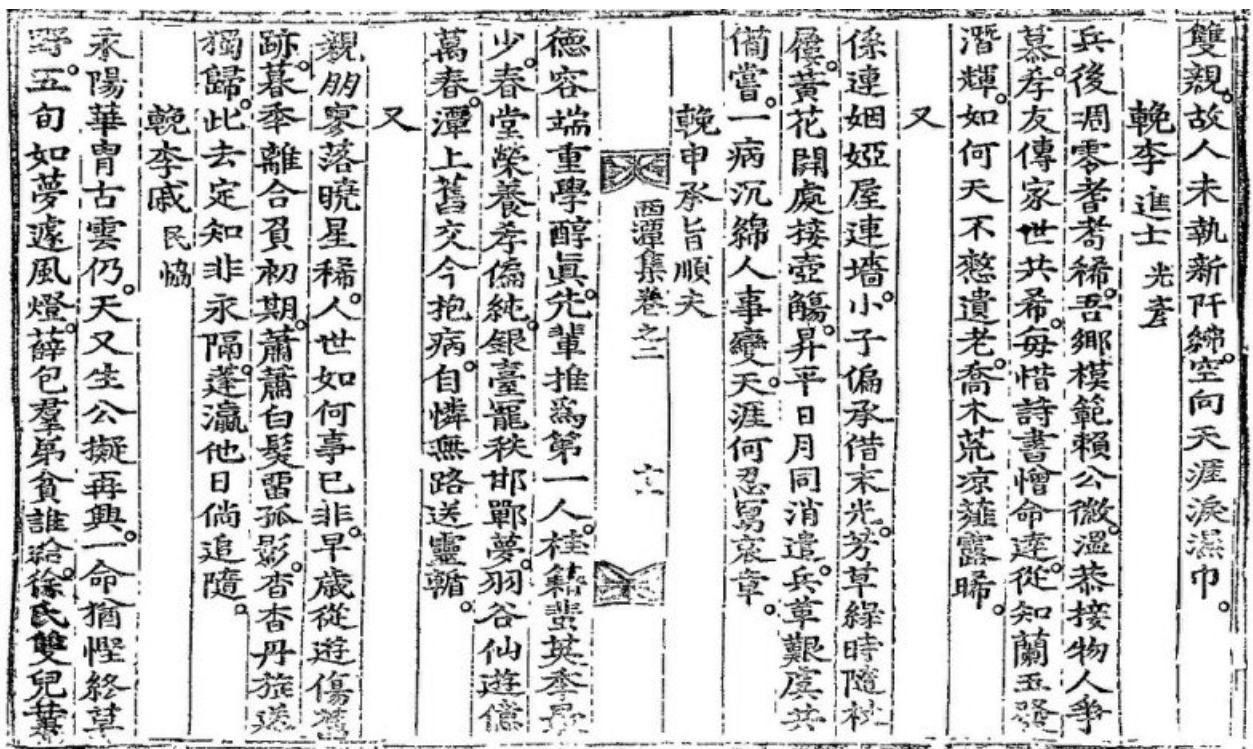 雙親故人未執新阡紼空向天涯淚濕巾
輓李進士 光彥
兵後凋零耆耈稀吾鄉模範賴公微溫恭接物人爭
慕孝友傳家世共希每惜詩書憎命達從知蘭玉發
潛輝如何天不憖遺老喬木荒凉薤露晞
又
係連姻婭屋連墻小子偏承借末光芳草綠時隨杖
屨黃花開處接壺觴昇平日月同消遣兵革艱虞共
備嘗一病沉綿人事變天涯何忍寫哀章
輓申承旨 順夫
西潭集卷之二 六
德容端重學醇眞先輩推爲第一人桂籍蜚英季最
少春堂榮養孝偏純銀臺寵秩邯鄲夢羽谷仙遊億
萬春潭上舊交今抱病自憐無路送靈輴
又
親朋寥落曉星稀人世如何事已非早歲從遊傷舊
跡暮秊離合負初期蕭蕭白髮留孤影杳杳丹旌送
獨歸此去定知非永隔蓬瀛他日倘追隨
輓李戚 民恊
永陽華胄古雲仍天又生公擬再興一命猶慳終草
野五旬如夢遽風燈薛包羣弟貧誰給徐氏雙兒